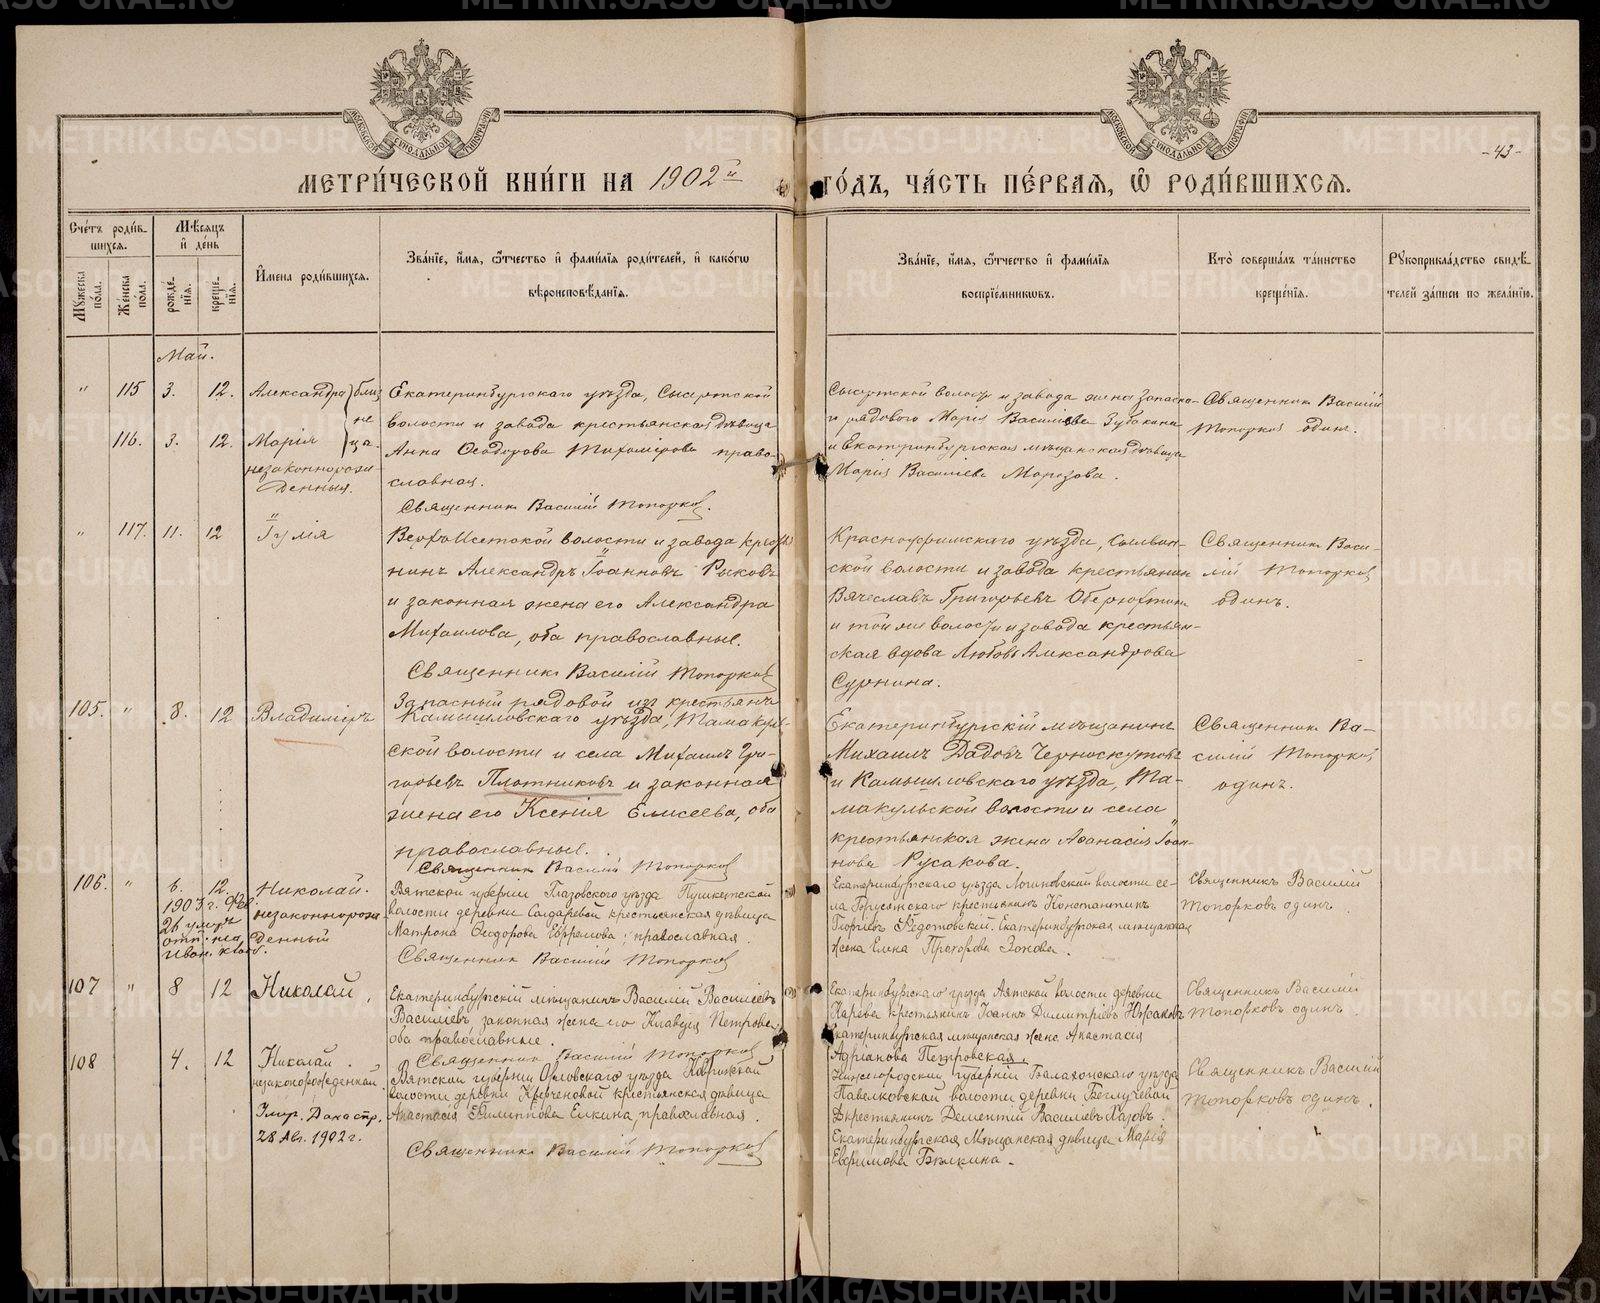 МЕТРИ́ЧЕСКОЙ КНИ́ГИ НА 1902й ГО́ДЪ, ЧА́СТЬ ПЕ́РВАЯ, Ѽ РОДИ́ВШИХСЯ.
-43-
Сче́тъ роди́в-
шихся.
Мѣ́сяцъ
и҆ де́нь
Мꙋ́жеска
по́ла.
Же́нска
по́ла.
рожде́-
нїѧ.
креще́-
нїѧ.
И҆мена роди́вшихся.
Зва́нїе, и҆́мя, ѻ҆́тчество и҆ фами́лїя роди́телей, и҆ како́гѡ
вѣроисповѣ́данїя.
Зва́нїе, и҆́мя, ѻ҆́тчество и҆ фами́лїя
воспрїе́мниковъ.
Кто̀ соверша́лъ та́инство
креще́нїя.
Рꙋкоприкла́дство свидѣ́-
телей за́писи по жела́нїю.
Май.
" 115 3. 12. Александра близ
не
116. 3. 12. Марія ца.
незаконнорож-
денныя.
Екатеринбургскаго уѣзда, Сысертской
волости и завода крестьянская дѣвица
Анна Ѳеодорова Тихомірова право-
славная.
Священник Василій Топорков.
Сысертской волости и завода жена запасна-
го рядового Марія Василіева Зубакина
и Екатеринбургская мѣщанская дѣвица
Марія Василіева Морозова.
Священник Василій
Топорков один.
" 117. 11. 12 Іулія
Верхъ Исетской волости и завода крестья
нинъ Александръ Іоанновъ Росковъ
и законная жена его Александра
Михаилова, оба православные.
Священник Василій Топорков
Красноуфимскаго уѣзда, Сылвин-
ской волости и завода крестьянин
Вячеславъ Григорьевъ Оберюхтин
и той же волости и завода крестьян-
ская вдова Любовь Александрова
Сурнина.
Священник Васи-
лій Топорков
одинъ.
105. " 8. 12 Владиміръ
Запасный рядовой из крестьянъ
Камышловскаго уѣзда, Тамакуль-
ской волости и села Михаилъ Гри-
горьевъ Плотниковъ и законная
жена его Ксенія Елисеева, оба
православные.
Священник Василій Топорков
Екатеринбургскій мѣщанинъ
Михаилъ Черноскутовъ
и Камышловскаго уѣзда, Та-
макульской волости и села
крестьянская жена Аѳанасія Іоан-
нова Русакова.
Священник Ва-
силій Топорков
одинъ.
106. " 6. 12. Николай.
незаконнорож
денный
1903 г. Фев.
26 умеръ
Вятской губерніи Глазовскаго уѣзда Пушкетской
волости деревни крестьянская дѣвица
Матрона Ѳеодорова Ефремова; православная.
Священник Василій Топорков
Екатеринбургскаго уѣзда Логиновской волости се-
ла Брусянскаго крестьянинъ Константинъ
Георгіевъ Ѳедотовскій. Екатеринбургская мѣщанская
жена Елена Прохорова Зонова.
Священникъ Василій
Топорковъ одинъ.
107 " 8 12 Николай.
Екатеринбургскій мѣщанинъ Василій Василіевъ
Василіевъ, законная жена его Клавдія Петрова,
оба православные.
Священник Василій Топорков
Екатеринбургскаго уѣзда Аятской волости деревни
крестьянинъ Іоаннъ Димитріевъ
Екатеринбургская мѣщанская жена Анастасія
Адріанова Петровская.
Священникъ Василій
Топорковъ одинъ.
108 4. 12 Николай.
незаконорожденный.
28 Ав. 1902 г.
Вятской губерніи Орловскаго уѣзда
волости деревни крестьянская дѣвица
Анастасія Филиппова Елкина, православная.
Священник Василій Топорков
Нижегородской губерніи Балахонскаго уѣзда
волости деревни
крестьянинъ Дементій Василіевъ
Екатеринбургская Мѣщанская дѣвица Марія
Евфимова Бѣлкина.
Священникъ Василій
Топорковъ одинъ.
METRIKI.GASO-URAL.RU